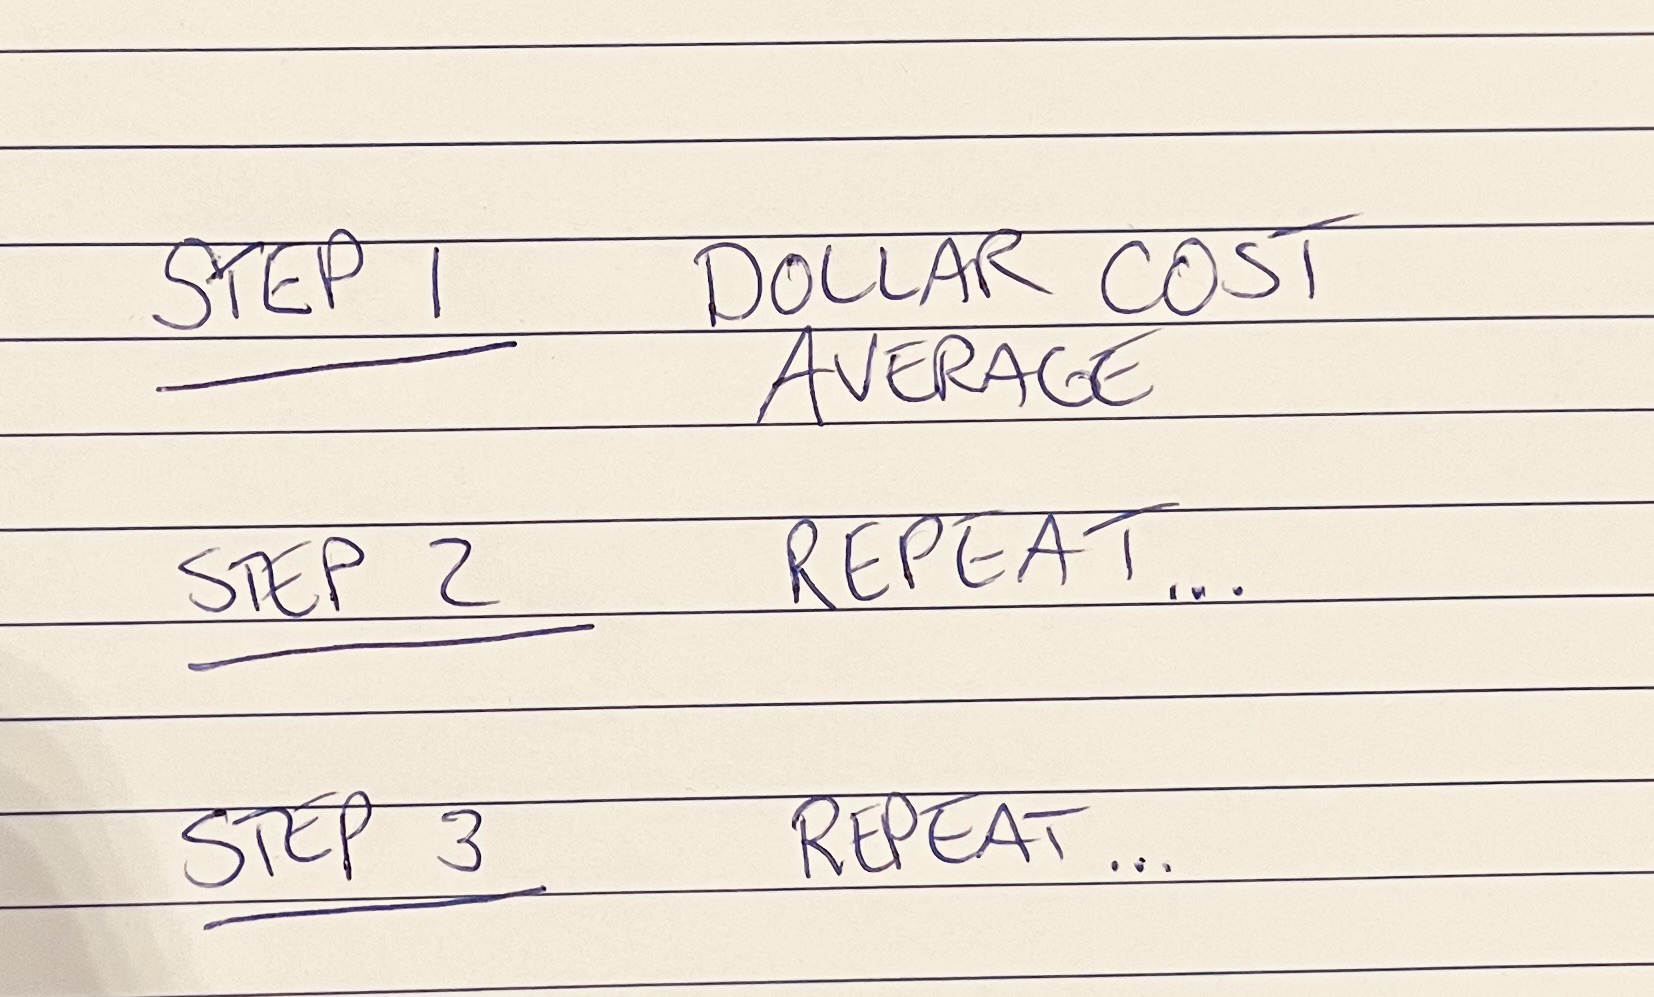 STEP 1 DOLLAR COST
AVERAGE
STEP 2 REPEAT...
STEP 3 REPEAT...